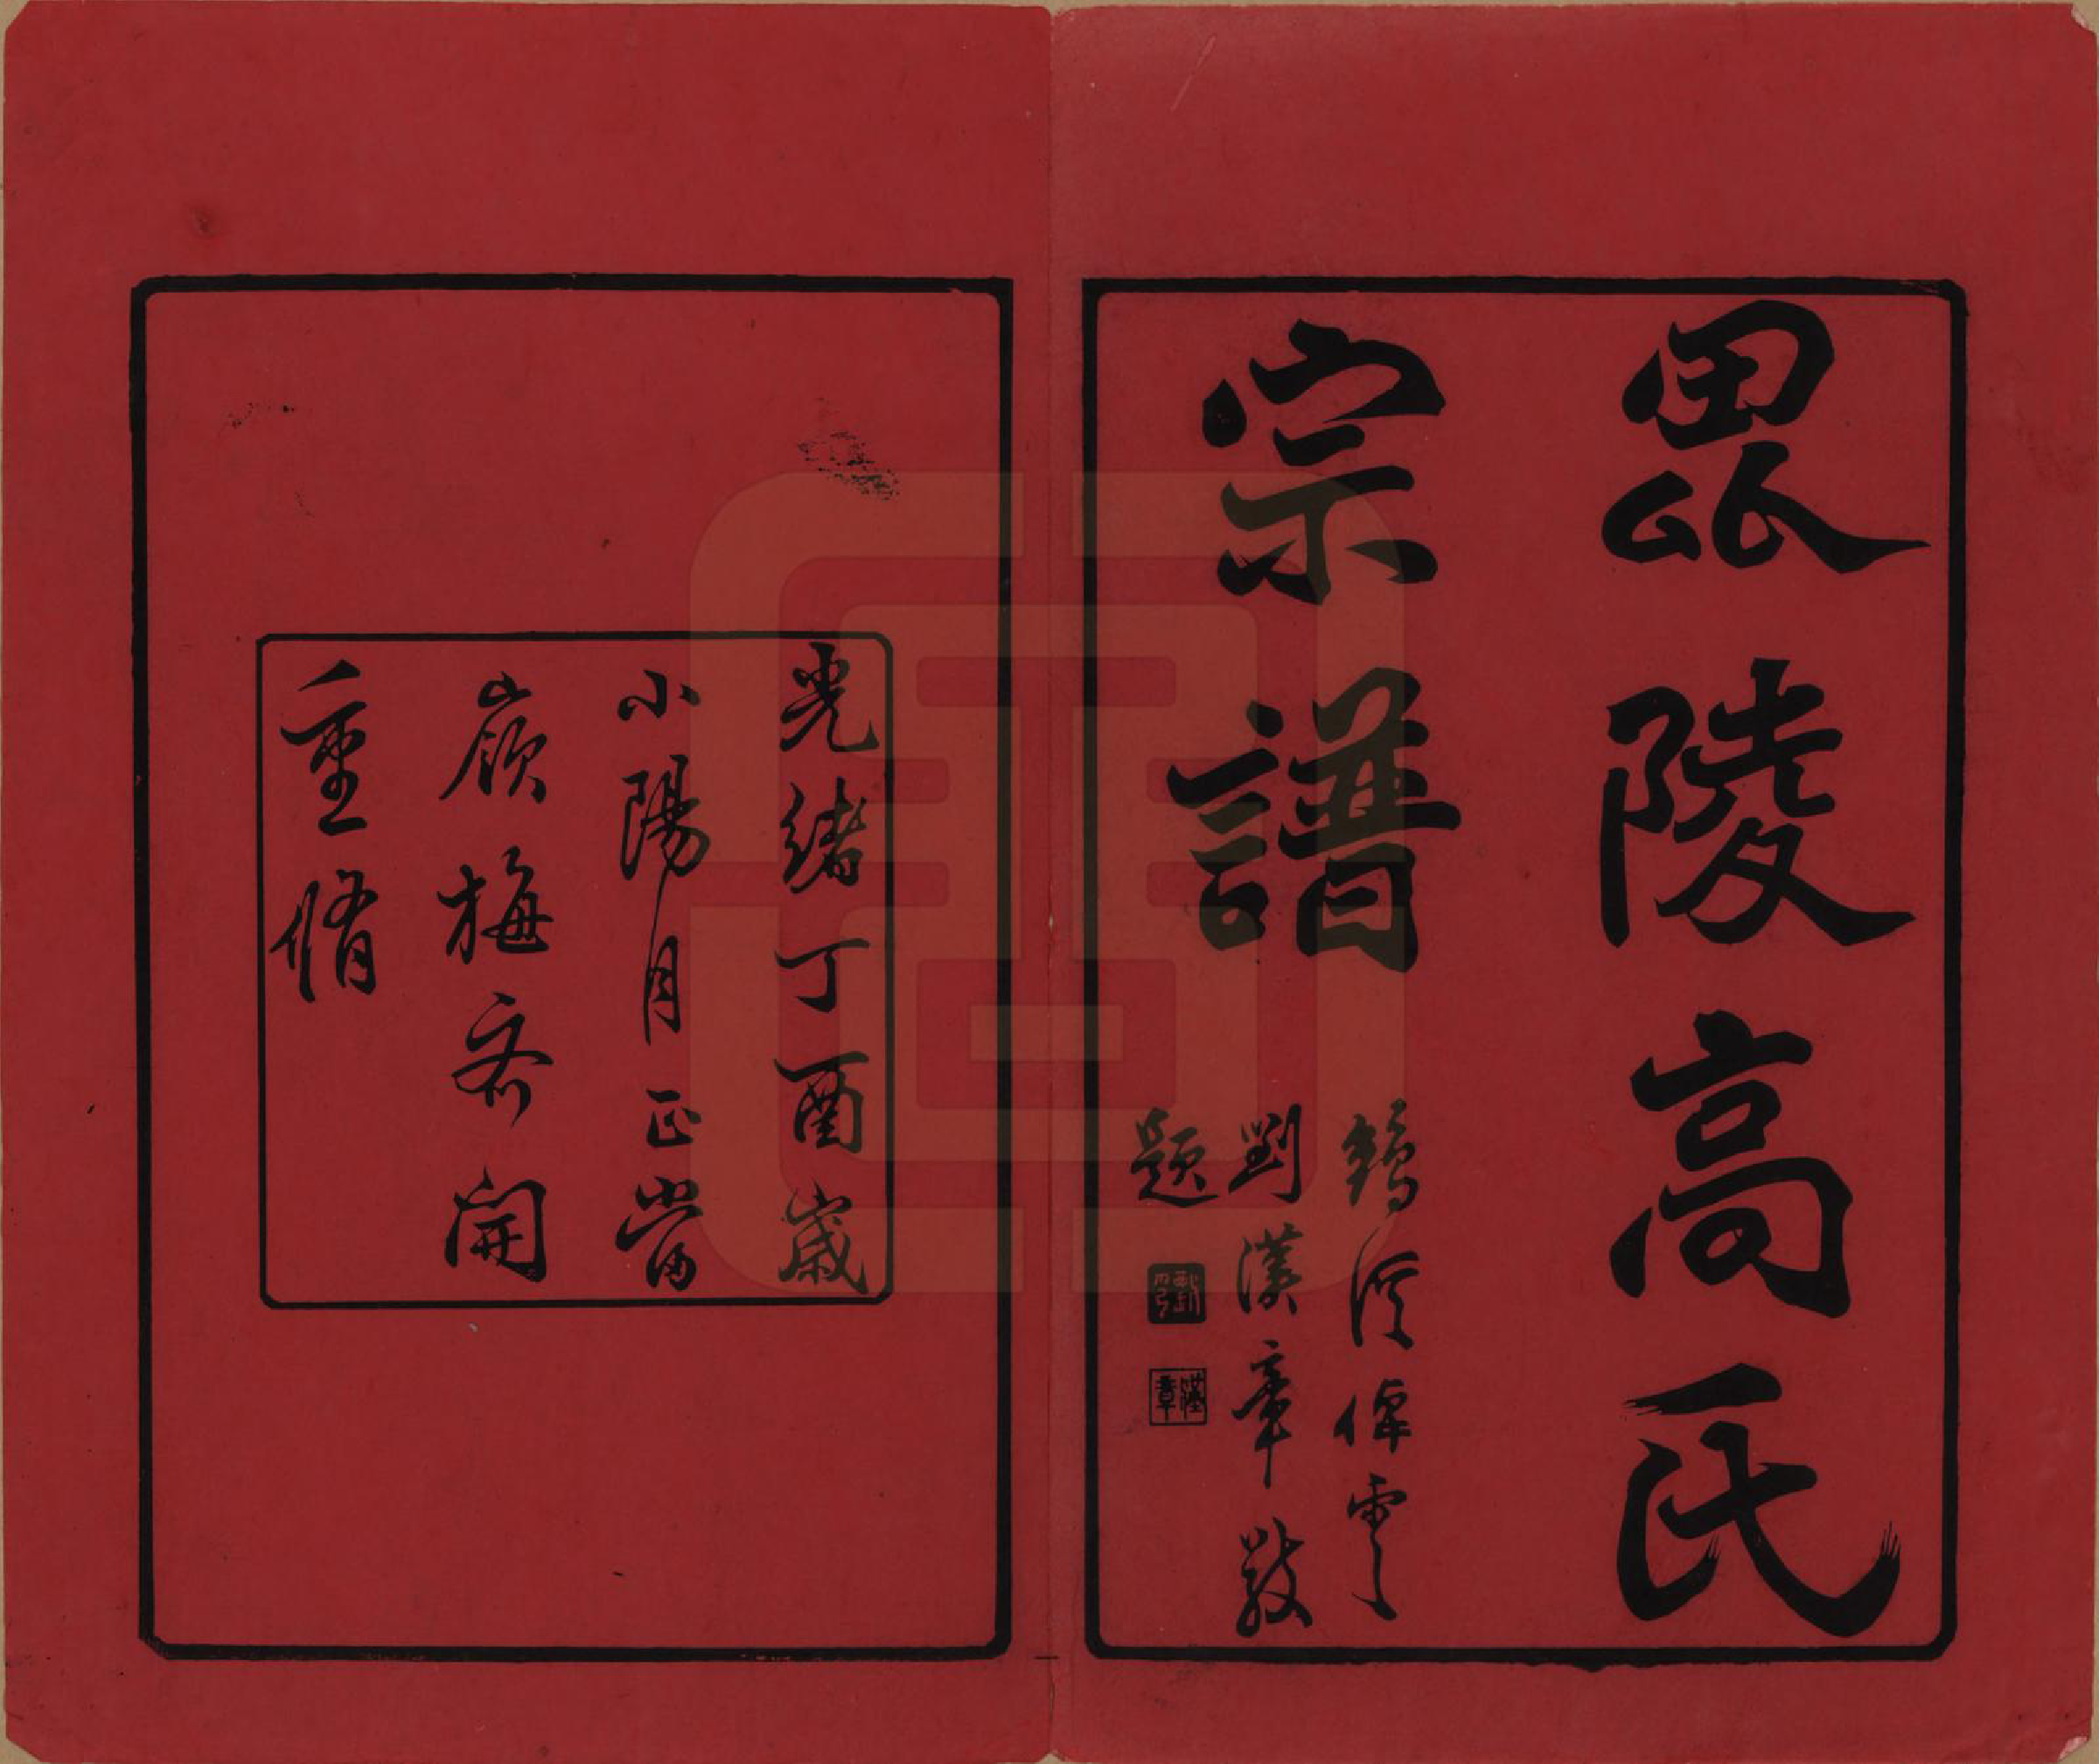 毘陵高氏
宗譜
鶴溪倬雲
劉漢章敬
題
漢章
光緒丁酉歲
小陽月正當
嶺梅初開
重脩